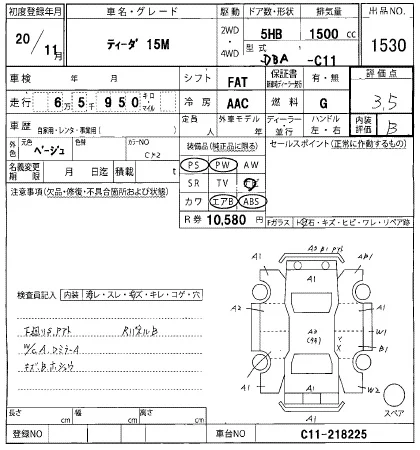 初度登録年月 車名・グレード 駆動 ドア数・形状 排気量 出品NO.
20/11月 ティーダ 15M 2WD・4WD 5HB 1500cc 1530
型式 DBA -C11
車検 年 月 シフト FAT 保証書 有・無 評価点
走行 6万5千950 キロ・マイル 冷房 AAC 燃料 G 3.5
車歴 自家用・レンタ・事業用( ) 定員 人 外車モデル 年 ディーラー・並行 ハンドル 左・右 内装評価 B
外色 元色 ベージュ 色替 カラーNO
名義変更期限 月 日迄 積載 t
装備品(純正品に限る) セールスポイント(正常に作動するもの)
PS PW AW
注意事項(欠品・修復・不具合箇所および状態)
SR TV
カワ エアB ABS
R券 10,580円
Fガラス トビ石・キズ・ヒビ・ワレ・リペア跡
A1 AB1
A1
検査員記入 内装 汚レ・スレ・キズ・キレ・コゲ・穴
A2 A1 W1
B1
A1 A1 W2
A1
スペア
長さ cm 幅 cm 高さ cm
登録NO 車台NO C11-218225